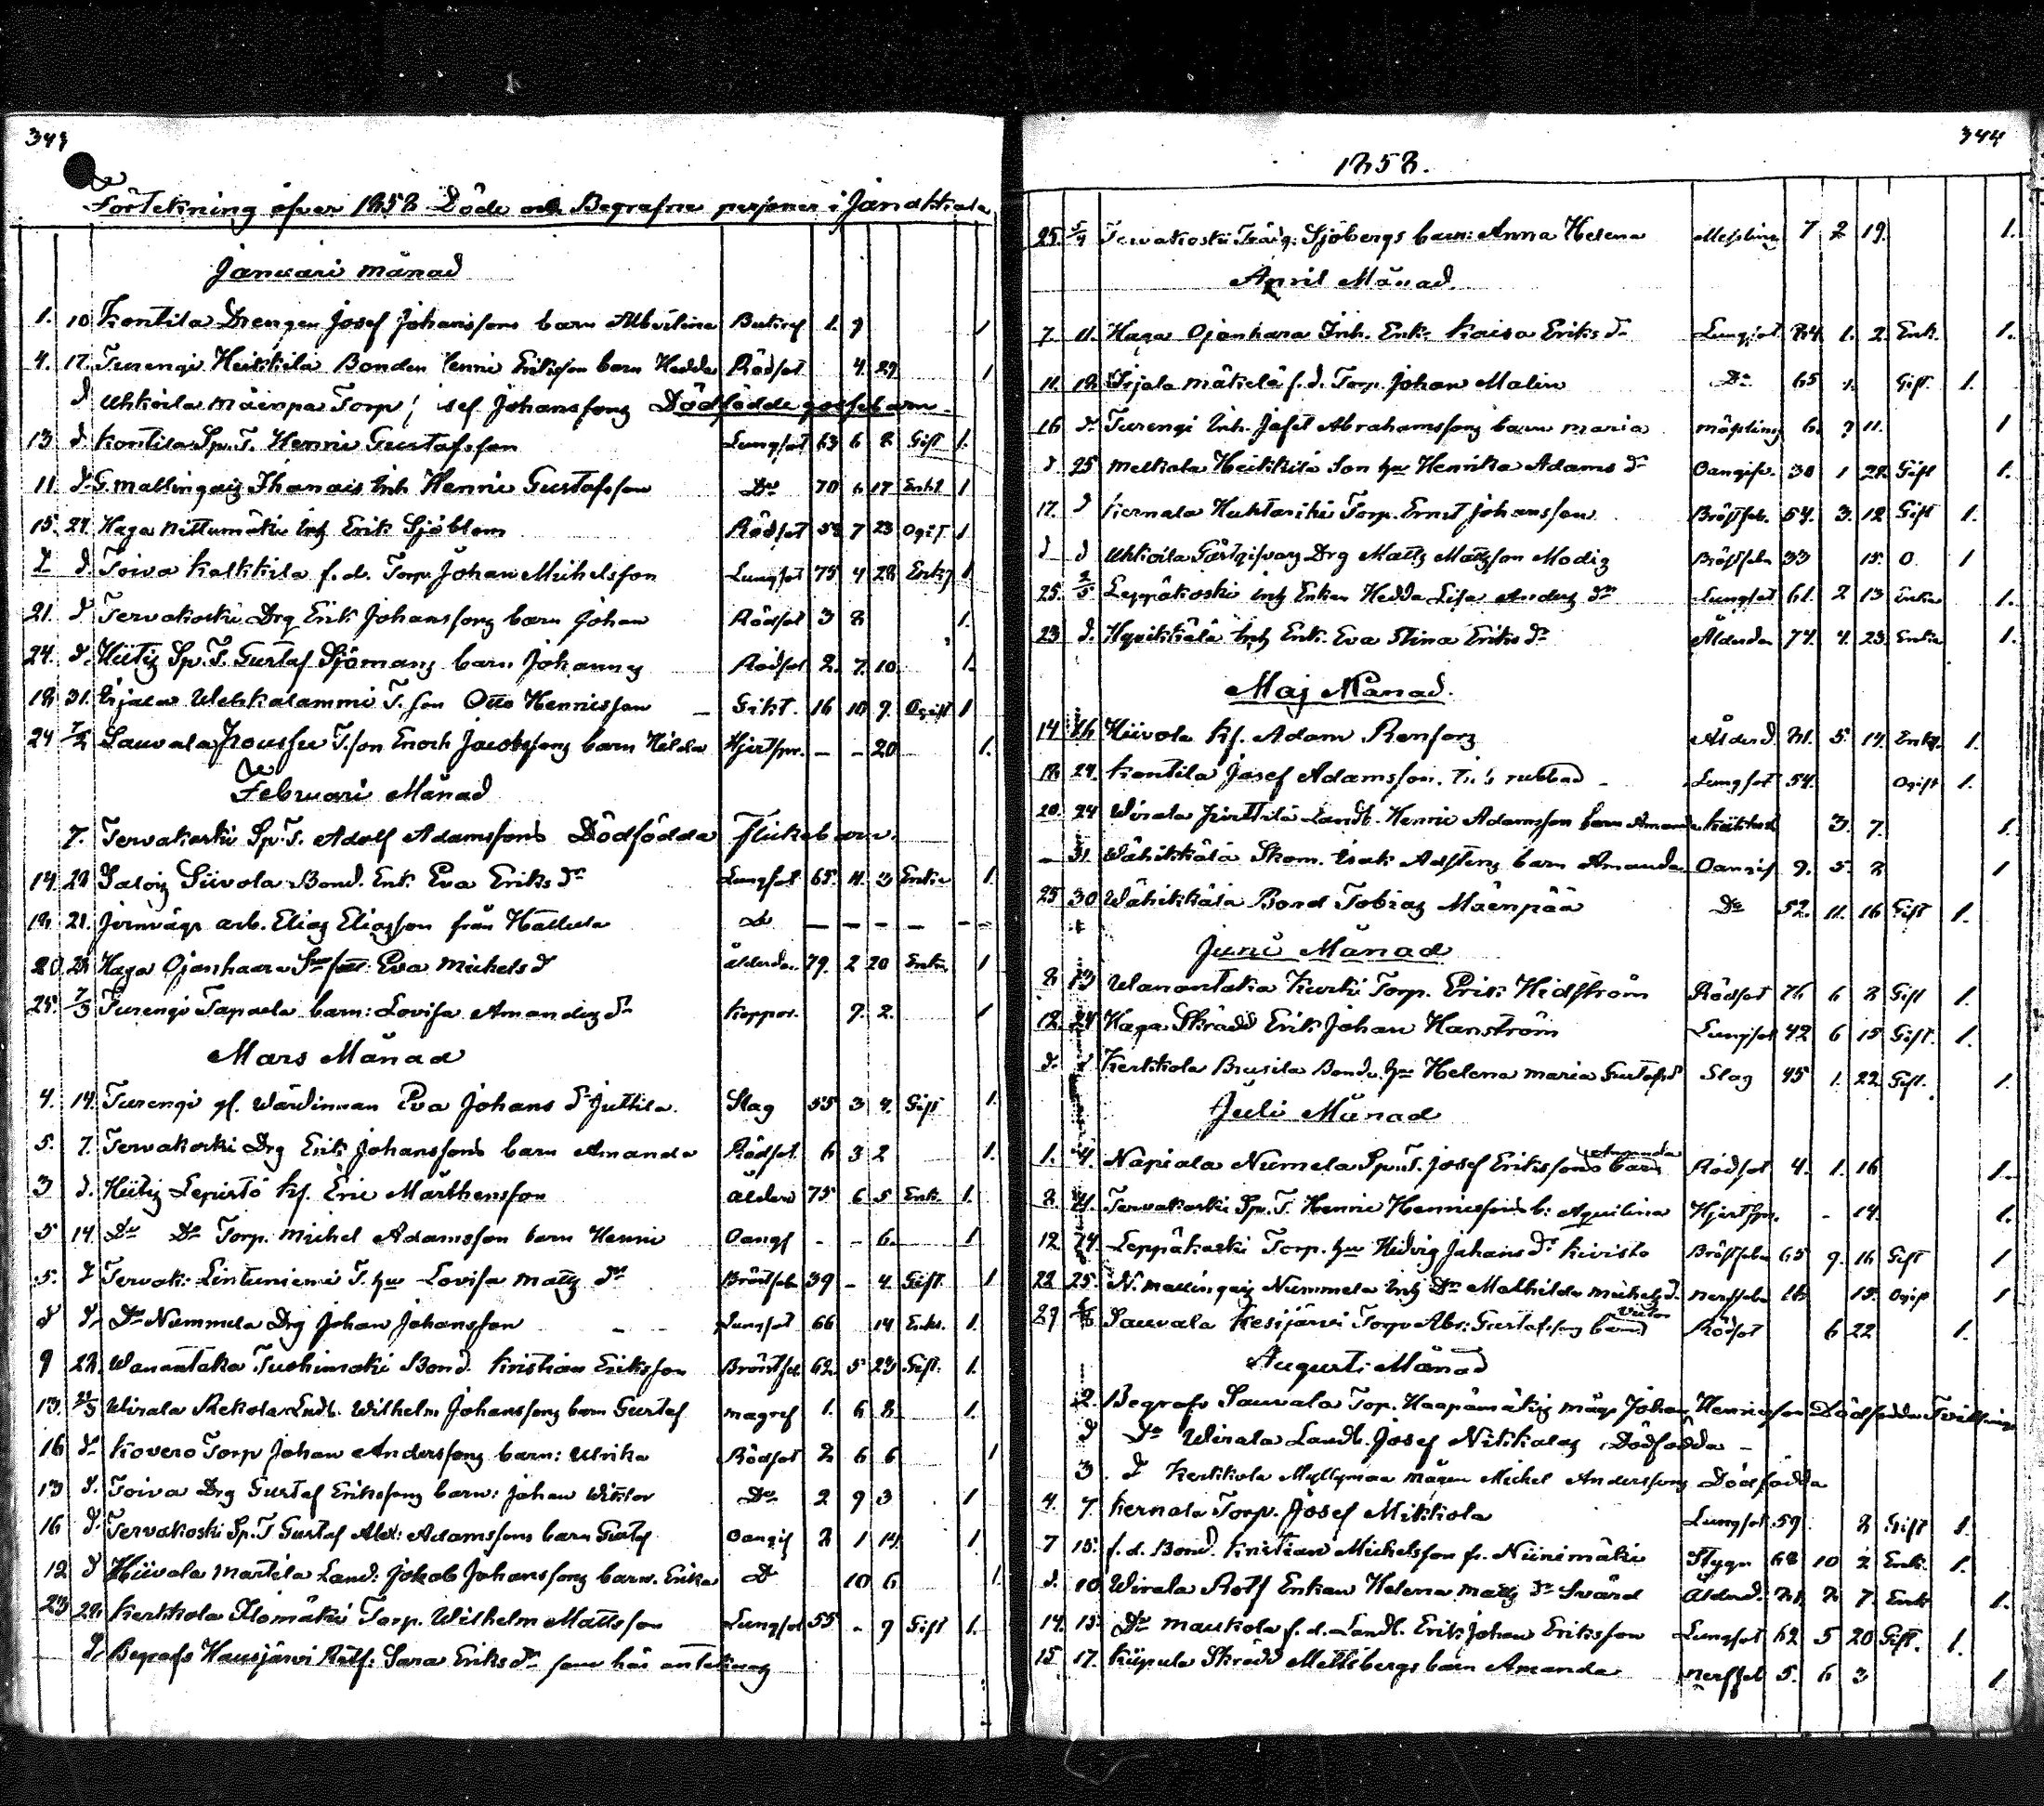 343
Förtekning öfver 1858 Döde och Begrafne personer i Janakkala
Januari månad
1. 10 Kontila Drengen Josef Johanssons barn Albertina 1. 9 1
4. 17. Turengi Heikkilä Bonden Henric Eriksson barn Hedda Rödsot 4 29 1
d Uhkoila Mäenpä Torp Josef Johanssons Dödfödde gossebarn
13 d Kontila Sp. T. Henric Gustafsson Lungsot 63 6 8 Gift 1.
11 d. G. Mallingais Inh Henric Gustafsson Do 70 6 17 Enkl 1
15. 24 Haga Nittumäki Inh Erik Sjöblom Rödsot 58 7 23 Ogift 1
d d. Toiva Kalkkila f. d. Torp. Johan Michelsson Lungsot 75 4 28 Enkl 1
21. d Tervakoski Drg Erik Johanssons barn Johan Rödsot 3 8 1.
24. d. Hiitis Sp. T. Gustaf Sjömans barn Johannes Rödsot 2. 7. 10. 1.
18 31. Irjala Wehkalammi T. son Otto Henricsson Gikt. 16 10 9. Ogift 1
24 7/2 Sauvala T. son Enoch Jacobssons barn Hilda Hjertspr. – – 20 1.
Februari Månad
7. Tervakoski Sp. T. Adolf Adamssons Dödfödda Flickebarn.
14. 28 Salois Siivola Bond. Enk. Eva Eriks dr Lungsot 65. 11. 3 Enka 1.
18 21. Jernvägs arb. Elias Eliasson från Hattula do – – – – – –
20. 28 Haga Ojanhaara Eva Michels d ålderdom. 79. 2 20 Enka 1
25. 7/3 Turengi Tapaela barn: Lovisa Amandas dr Koppor. 9. 2. 1
Mars Månad
4. 14. Turengi gl. Wärdinnan Eva Johans dr Juttila. Slag 55 3 4. Gift 1.
5. 7. Tervakoski Drg Erik Johanssons barn Amanda Rödsot 6 3 2 1.
3 d. Hiitis Lepistö Kf. Eric Mårthensson ålderd 75 6 5 Enk. 1.
5 14. Do Do Torp. Michel Adamsson barn Henric Oangf – – 6. 1
5. d Tervak: Lintuniemi T. hu Lovisa Matts dr Bröstfeb 39 – 4. Gift. 1
d d. Do Nummela Drg Johan Johansson Lungsot 66 14 Enkl. 1.
9 28. Wanantaka Tuohimäki Bond. Kristian Eriksson Bröstfeb. 62. 5 23 Gift. 1.
13. 21/3 Wirala Rekola Lndb. Wilhelm Johanssons barn Gustaf magref 1. 6 8 1.
16 d. Kovero Torp Johan Anderssons barn: Ulrika Rödsot 2 6 6 1
13 d. Toiva Drg Gustaf Erikssons barn: Johan Wiktor Do 2 9 3 1
16 d. Tervakoski Sp. T Gustaf Alex: Adamssons barn Gustaf Oangif 2 1 14. 1
12 d Hiivola Martila Land: Jakob Johanssons barn. Erika D 10 6 1.
23 28. Kerkkola Ilomäki Torp. Wilhelm Mattsson Lungsot 55 – 9 Gift 1.
d. Begrafs Hausjärvi Rotf: Sara Eriks dr som här anteknas
344
1858.
25. 5/4 Tervakoski Sjöbergs barn: Anna Helena Messling 7 2 19. 1.
April Månad.
7. 11. Haga Ojanhara Inh. Enk. Kaisa Eriks dr Lungsot. 84. 1. 2. Enk. 1.
11. 18 Irjala Mäkelä f. d. Torp. Johan Malin Do 65 1. Gift. 1.
16 d. Turengi Inh. Jafet Abrahamssons barn Maria mäsling 6. 11. 1
d. 25 Melkola Heikkilä Son hu Henrika Adams dr Oangif. 30 1 28. Gift 1.
17. d Kernala Huhtariki Torp. Ernst Johansson Bröstfeb. 54. 3. 12 Gift 1.
d d Uhkoila Drg Matts Mattsson Modig Bröstfeb 33 15. O 1
25. 2/5 Leppäkoski Inh Enkan Hedda Lisa Anders dr Lungsot 61. 2 13 Enka 1.
23 d. Hyvikkälä Inh Enk. Eva Stina Eriks dr Ålderdom 74. 4. 23. Enka 1.
Maj Månad.
14 16 Hiivola Kf. Adam Renfors Ålderd 81. 5. 14. Enkl. 1.
18. 24. Kontila Josef Adamsson. rubbad Lungsot 54. Ogift 1.
20. 24 Wirala Pirttilä Landb. Henric Adamsson barn Amanda Kikhost 3. 7. 1.
– 31. Wähikkälä Skom. Isak barn Amanda Oangif 9. 5. 8 1
25 30 Wähikkälä Bond Tobias Mäenpää Do 52. 11. 16 Gift 1.
Juni Månad
8 13 Wanantaka Kurki Torp. Erik Hidström Rödsot 76 6 8 Gift 1.
12. 24 Haga Skrädd Erik Johan Hanström Lungsot 42 6 15 Gift. 1.
d. d Kerkkola Brusila Bonde. hu Helena Maria Gustafsd Slag 45 1. 22. Gift. 1.
Juli Månad
1. 4. Napiala Numela Sp. T. Josef Erikssons barn Amanda Rödsot 4. 1. 16 1.
8. 11. Tervakoski Sp. T. Henric Henricssons b: Aquilina Hjertspr. – 14. 1.
12 24. Leppäkoski Torp. hu Hedvig Johans dr Kivistö Bröstfeber 65 9. 16 Gift 1
22 25. N. Mallingais Nummela Inh Dr Mathilda Michels d. nerffeber 16 15. Ogift 1
29 6/8 Sauvala Kesijärvi Torp Abr: Gustafssons barn Victor Rödsot 6 22 1.
Augusti Månad
2. Begrafs Sauvala Torp. Haapamäkis måg Johan Henricsson Dödfödda Tvillingar
d Do Wirala Landb. Josef Nikkalas Dödfödda –
3. d Kerkkola Myllymaa mågen Michel Anderssons Dödfödda
4. 7. Kernala Torp. Josef Mikkola Lungsot 59. 8 Gift 1
7 15. f. d. Bond. Kristian Michelsson fr. Niinimäki Stygn 68 10 2 Enkl. 1.
d. 10 Wirala Rotf Enkan Helena Matts dr Svärd Ålderd. 81. 8 7. Enk 1.
14. 15. Do Maukola f. d. Landb. Erik Johan Eriksson Lungsot 62 5 20 Gift. 1.
15 17. Kiipula Skrädd Mellbergs barn Amanda nerffeb 5. 6 3 1